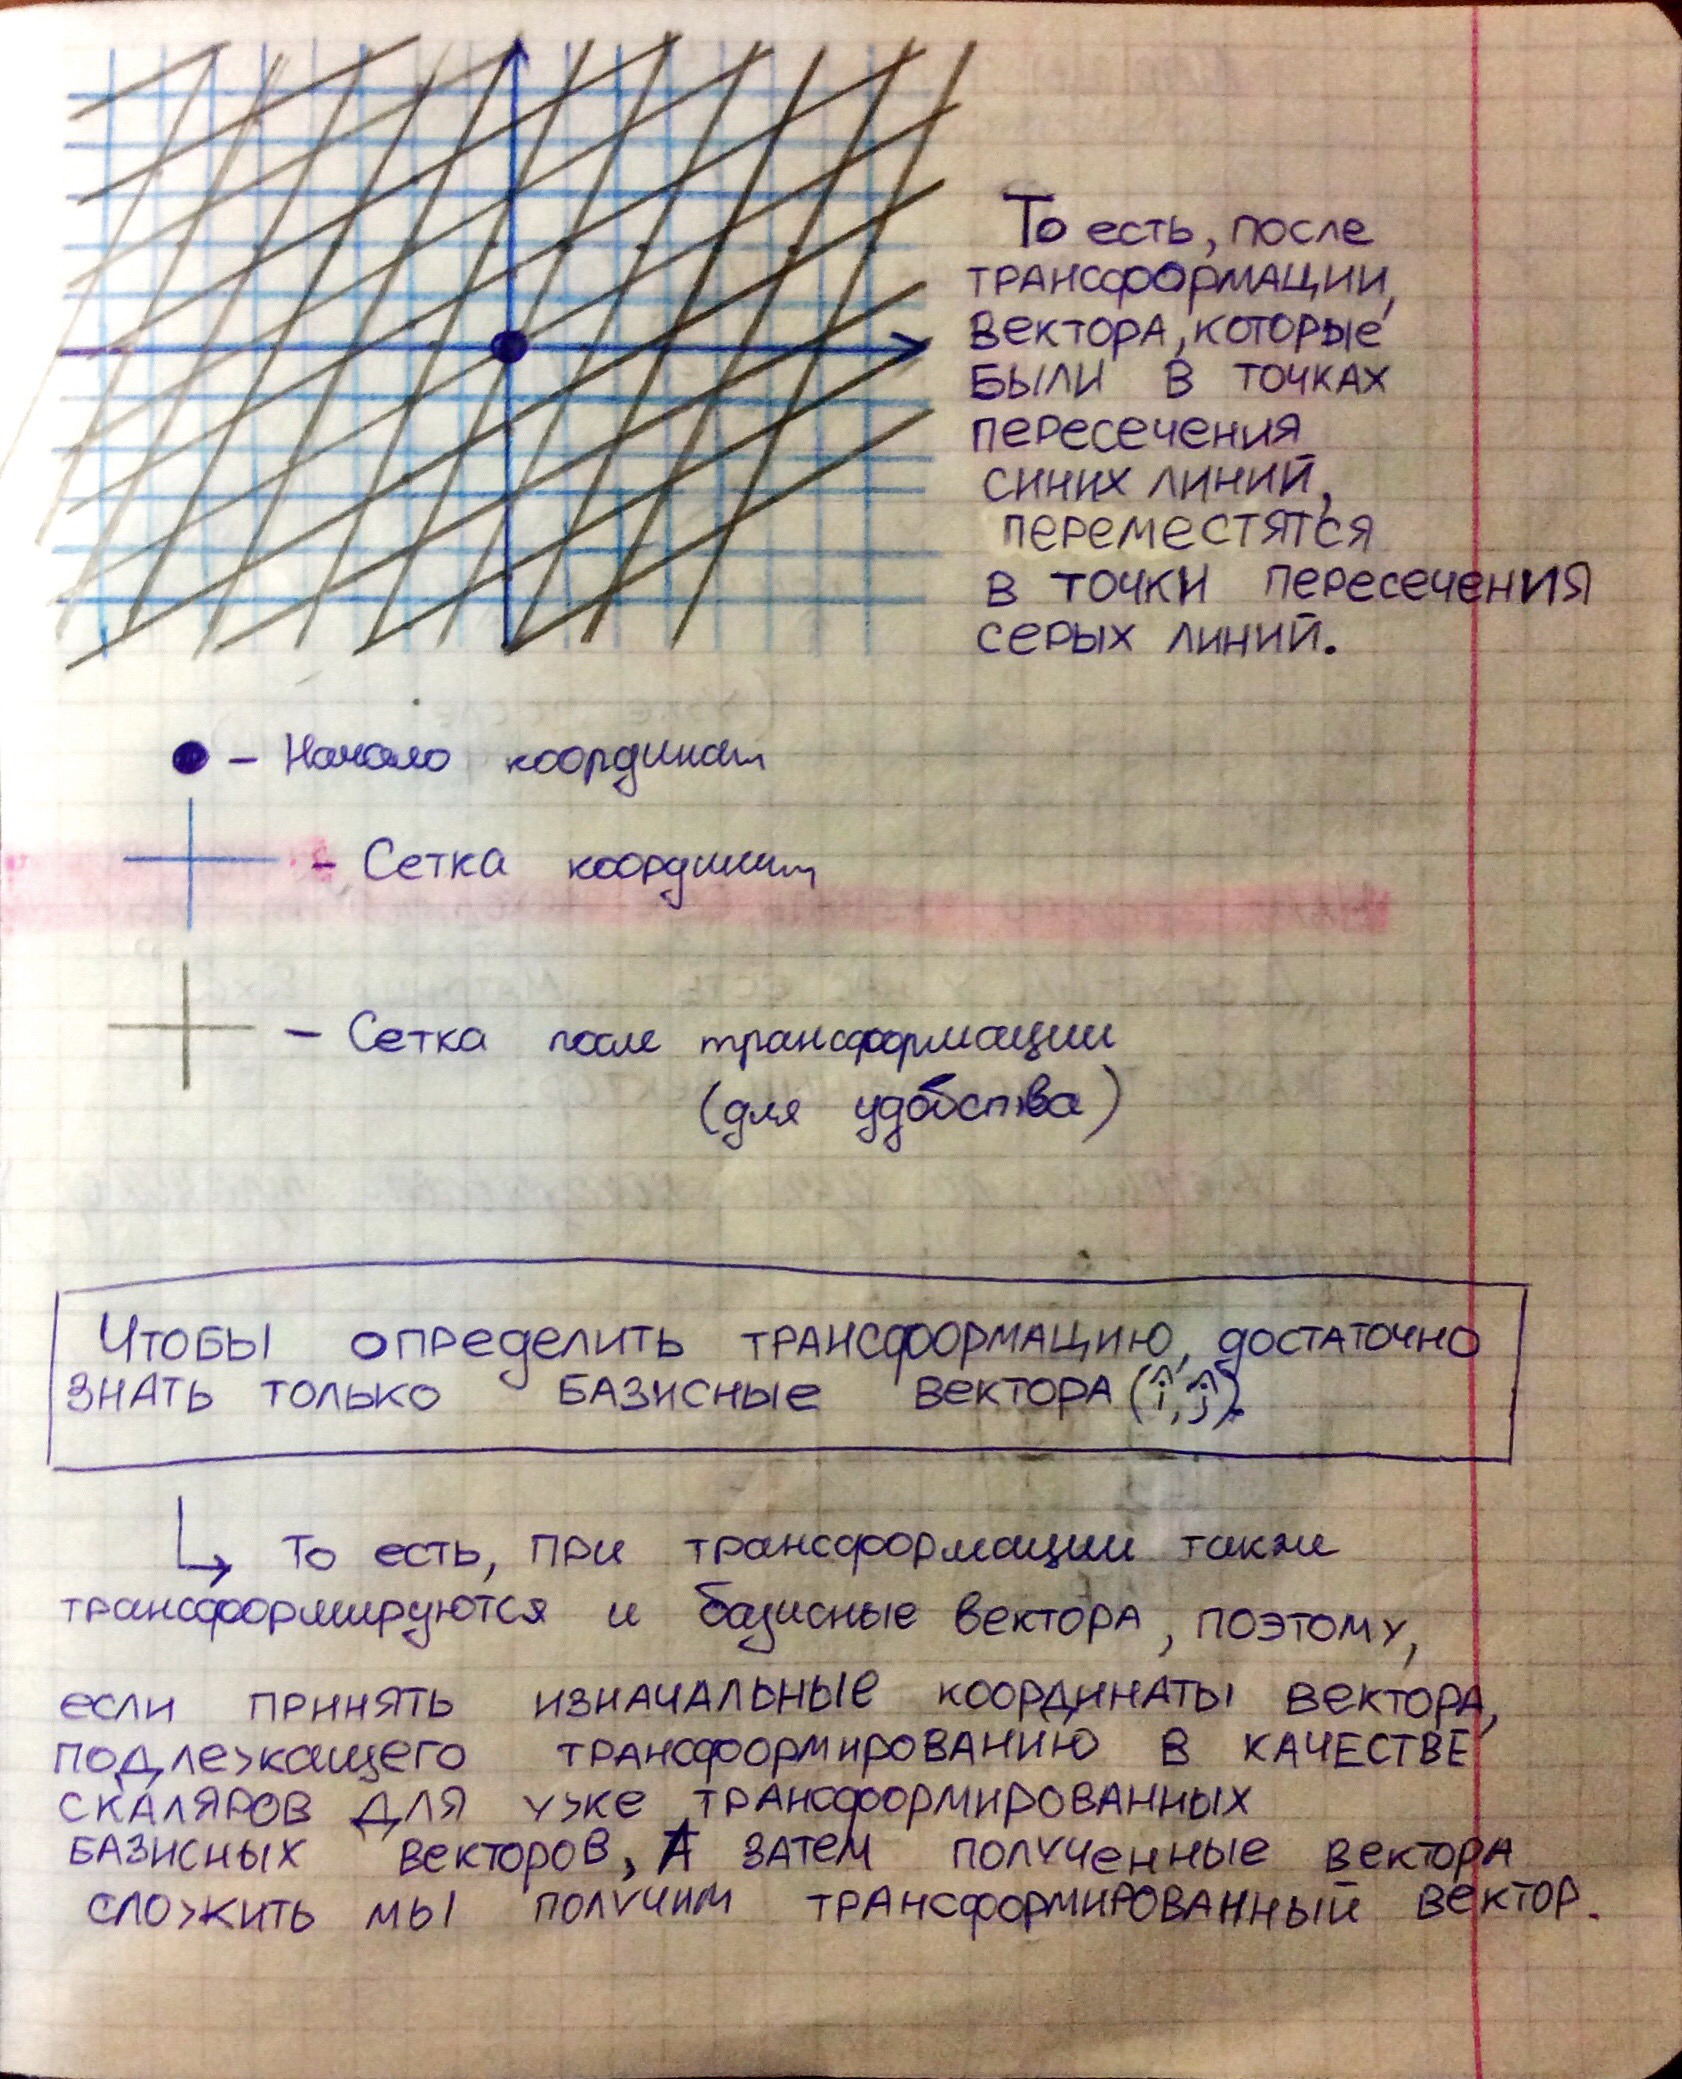 То есть, после
трансформации,
вектора, которые
были в точках
пересечения
синих линий,
переместятся
в точки пересечения
серых линий.
– Начало координат
– Сетка координат
– Сетка после трансформации
(для удобства)
Чтобы определить трансформацию, достаточно
знать только базисные вектора (î, ĵ).
То есть, при трансформации также
трансформируются и базисные вектора, поэтому,
если принять изначальные координаты вектора,
подлежащего трансформированию в качестве
скаляров для уже трансформированных
базисных векторов, а затем полученные вектора
сложить мы получим трансформированный вектор.